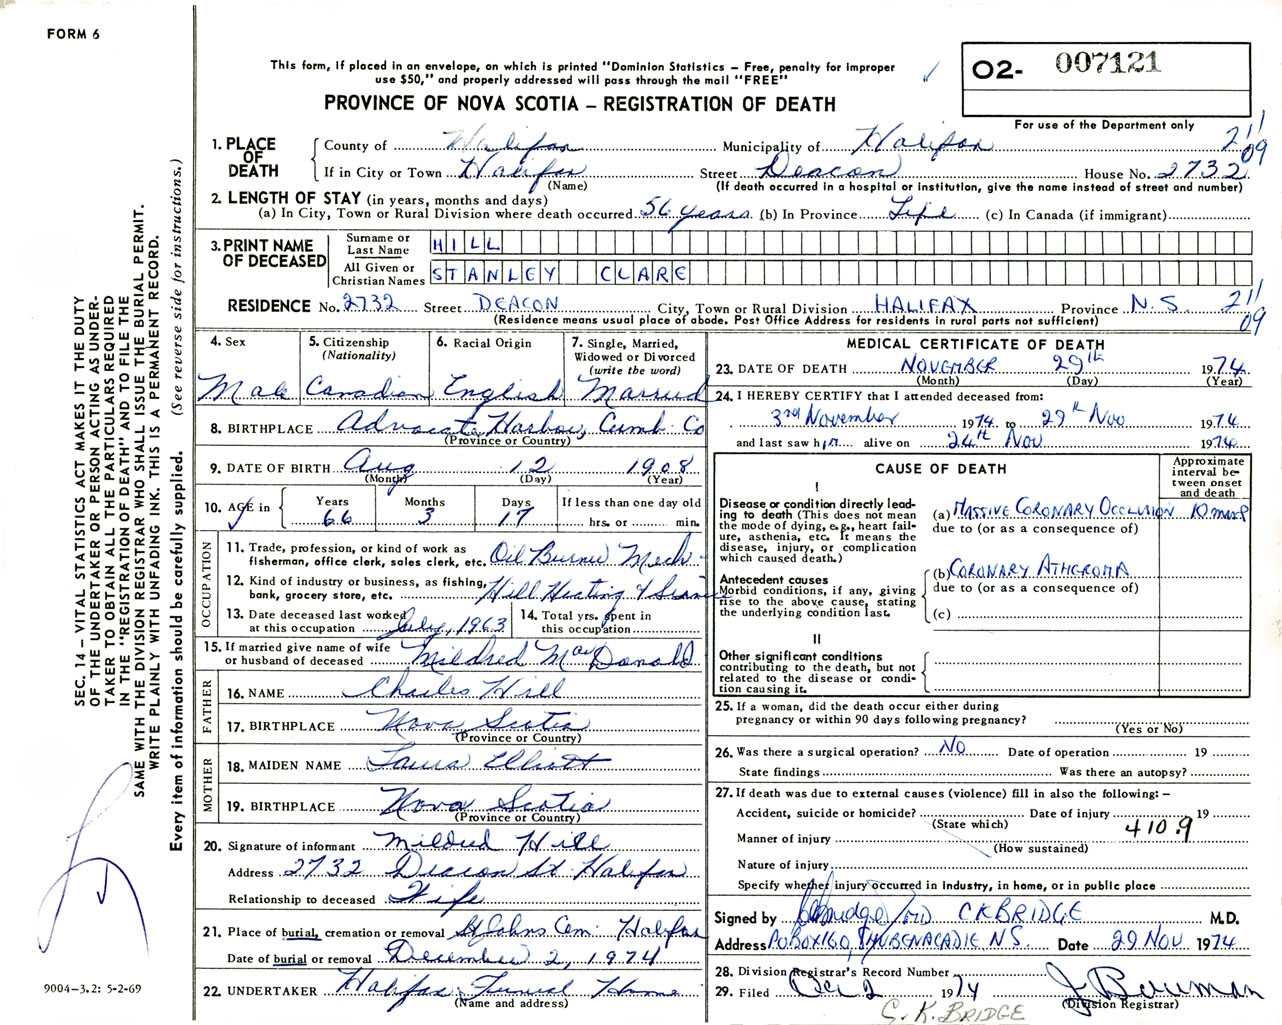 FORM 6
This form, if placed in an envelope, on which is printed "Dominion Statistics – Free, penalty for improper
use $50," and properly addressed will pass through the mail "FREE"
PROVINCE OF NOVA SCOTIA – REGISTRATION OF DEATH
O2- 007121
For use of the Department only
211
09
1. PLACE OF DEATH
County of Halifax Municipality of Halifax
If in City or Town Halifax Street Deacon House No. 2732
(Name) (If death occurred in a hospital or institution, give the name instead of street and number)
2. LENGTH OF STAY (in years, months and days)
(a) In City, Town or Rural Division where death occurred 56 years (b) In Province Life (c) In Canada (if immigrant)
3. PRINT NAME OF DECEASED
Surname or Last Name HILL
All Given or Christian Names STANLEY CLARE
RESIDENCE No. 2732 Street DEACON City, Town or Rural Division HALIFAX Province N.S. 211
09
(Residence means usual place of abode. Post Office Address for residents in rural parts not sufficient)
4. Sex
Male
5. Citizenship
(Nationality)
Canadian
6. Racial Origin
English
7. Single, Married,
Widowed or Divorced
(write the word)
Married
8. BIRTHPLACE Advocate Harbour, Cumb. Co
(Province or Country)
9. DATE OF BIRTH Aug 12 1908
(Month) (Day) (Year)
10. AGE in
Years 66
Months 3
Days 17
If less than one day old
hrs. or min.
OCCUPATION
11. Trade, profession, or kind of work as
fisherman, office clerk, sales clerk, etc. Oil Burner Mech.
12. Kind of industry or business, as fishing,
bank, grocery store, etc. Hill Heating & Service
13. Date deceased last worked
at this occupation July, 1963
14. Total yrs. spent in
this occupation
15. If married give name of wife
or husband of deceased Mildred MacDonald
FATHER
16. NAME Charles Hill
17. BIRTHPLACE Nova Scotia
(Province or Country)
MOTHER
18. MAIDEN NAME Laura Elliott
19. BIRTHPLACE Nova Scotia
(Province or Country)
20. Signature of informant Mildred Hill
Address 2732 Deacon St. Halifax
Relationship to deceased Wife
21. Place of burial, cremation or removal St Johns Cem. Halifax
Date of burial or removal December 2, 1974
22. UNDERTAKER Halifax Funeral Home
(Name and address)
MEDICAL CERTIFICATE OF DEATH
23. DATE OF DEATH NOVEMBER 29th 1974
(Month) (Day) (Year)
24. I HEREBY CERTIFY that I attended deceased from:
3rd November 1974 to 29th Nov 1974
and last saw him alive on 24th Nov 1974
CAUSE OF DEATH
Approximate
interval be-
tween onset
and death
I
Disease or condition directly lead-
ing to death (This does not
mean the mode of dying, e.g., heart fail-
ure, asthenia, etc. It means the
disease, injury, or complication
which caused death.)
(a) MASSIVE CORONARY OCCLUSION 10 mins
due to (or as a consequence of)
Antecedent causes
Morbid conditions, if any, giving
rise to the above cause, stating
the underlying condition last.
(b) CORONARY ATHEROMA
due to (or as a consequence of)
(c)
II
Other significant conditions
contributing to the death, but not
related to the disease or condi-
tion causing it.
25. If a woman, did the death occur either during
pregnancy or within 90 days following pregnancy?
(Yes or No)
26. Was there a surgical operation? NO Date of operation 19
State findings Was there an autopsy?
27. If death was due to external causes (violence) fill in also the following: –
Accident, suicide or homicide? Date of injury 19
(State which)
410.9
Manner of injury
(How sustained)
Nature of injury
Specify whether injury occurred in Industry, in home, or in public place
Signed by CKBridge MD CKBRIDGE M.D.
Address PO BOX 160, SHUBENACADIE N.S. Date 29 NOV 1974
28. Division Registrar's Record Number
29. Filed Dec 2 1974 J Bowman
(Division Registrar)
C. K. BRIDGE
SEC. 14 – VITAL STATISTICS ACT MAKES IT THE DUTY
OF THE UNDERTAKER OR PERSON ACTING AS UNDER-
TAKER TO OBTAIN ALL THE PARTICULARS REQUIRED
IN THE "REGISTRATION OF DEATH" AND TO FILE THE
SAME WITH THE DIVISION REGISTRAR WHO SHALL ISSUE THE BURIAL PERMIT.
WRITE PLAINLY WITH UNFADING INK. THIS IS A PERMANENT RECORD.
Every item of information should be carefully supplied. (See reverse side for instructions.)
9004–3.2: 5-2-69